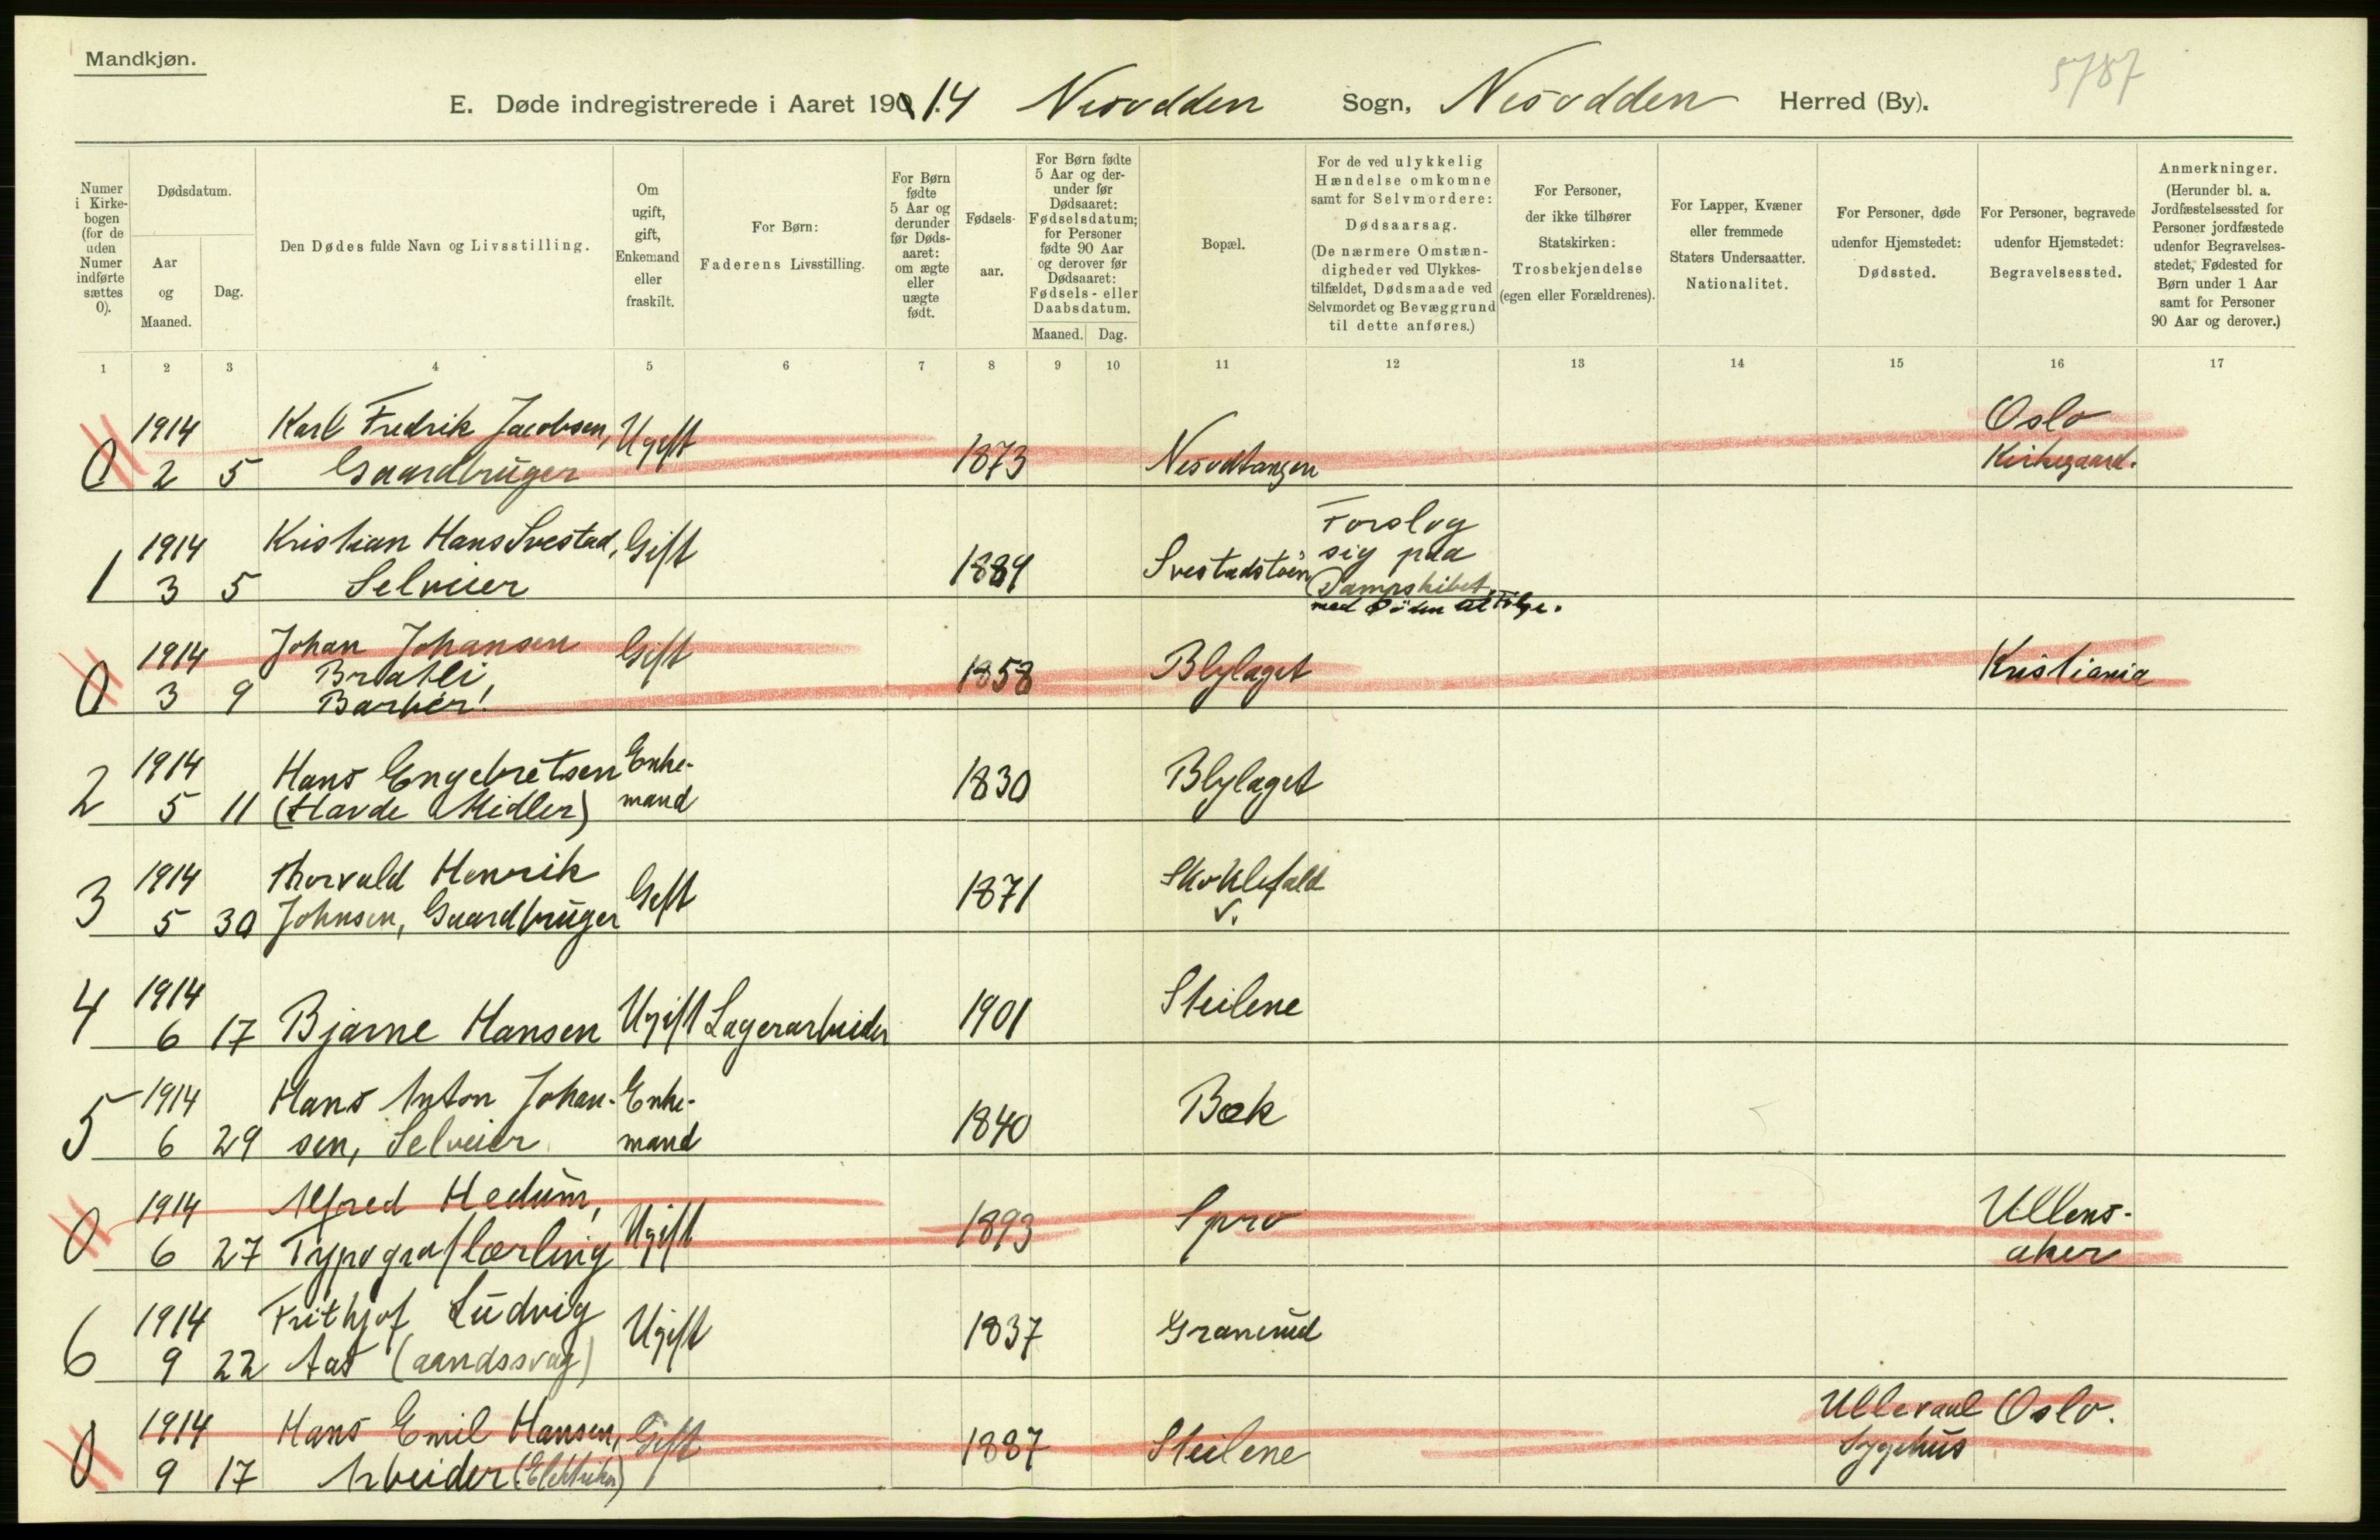 Mandkjøn.
5787
E. Døde indregistrerede i Aaret 1914 Nesodden Sogn, Nesodden Herred (By).
Numer i Kirkebogen (for de uden Numer indførte sættes 0).
Dødsdatum.
Aar og Maaned.
Dag.
Den Dødes fulde Navn og Livsstilling.
Om ugift, gift, Enkemand eller fraskilt.
For Børn: Faderens Livsstilling.
For Børn fødte 5 Aar og derunder før Dødsaaret: om ægte eller uægte født.
Fødselsaar.
For Børn fødte 5 Aar og derunder før Dødsaaret: Fødselsdatum; for Personer fødte 90 Aar og derover før Dødsaaret: Fødsels- eller Daabsdatum.
Maaned. Dag.
Bopæl.
For de ved ulykkelig Hændelse omkomne samt for Selvmordere: Dødsaarsag. (De nærmere Omstændigheder ved Ulykkestilfældet, Dødsmaade ved Selvmordet og Bevæggrund til dette anføres.)
For Personer, der ikke tilhører Statskirken: Trosbekjendelse (egen eller Forældrenes).
For Lapper, Kvæner eller fremmede Staters Undersaatter. Nationalitet.
For Personer, døde udenfor Hjemstedet: Dødssted.
For Personer, begravede udenfor Hjemstedet: Begravelsessted.
Anmerkninger. (Herunder bl. a. Jordfæstelsessted for Personer jordfæstede udenfor Begravelsesstedet, Fødested for Børn under 1 Aar samt for Personer 90 Aar og derover.)
1 2 3 4 5 6 7 8 9 10 11 12 13 14 15 16 17
0 1914 2 5 Karl Fredrik Jacobsen, Gaardbruger Ugift 1873 Nesodtangen Oslo Kirkegaard.
1 1914 3 5 Kristian Hans Svestad, Selveier Gift 1889 Svestadstöen Forslog sig paa Dampskibet, med Döden til Følge.
0 1914 3 9 Johan Johansen Bratli, Barber! Gift 1858 Blylaget Kristiania
2 1914 5 11 Hans Engebretsen (Havde Midler) Enkemand 1830 Blylaget
3 1914 5 30 Thorvald Henrik Johnsen, Gaardbruger Gift 1871 Skoklefald v.
4 1914 6 17 Bjarne Hansen Ugift Lagerarbeider 1901 Steilene
5 1914 6 29 Hans Anton Johansen, Selveier Enkemand 1840 Bæk
0 1914 6 27 Alfred Hedum, Typograflærling Ugift 1893 Spro Ullensaker
6 1914 9 22 Frithjof Ludvig Aas (aandssvag) Ugift 1837 Granerud
0 1914 9 17 Hans Emil Hansen, Arbeider (Elektriker) Gift 1887 Steilene Ullevaal Sygehus Oslo.